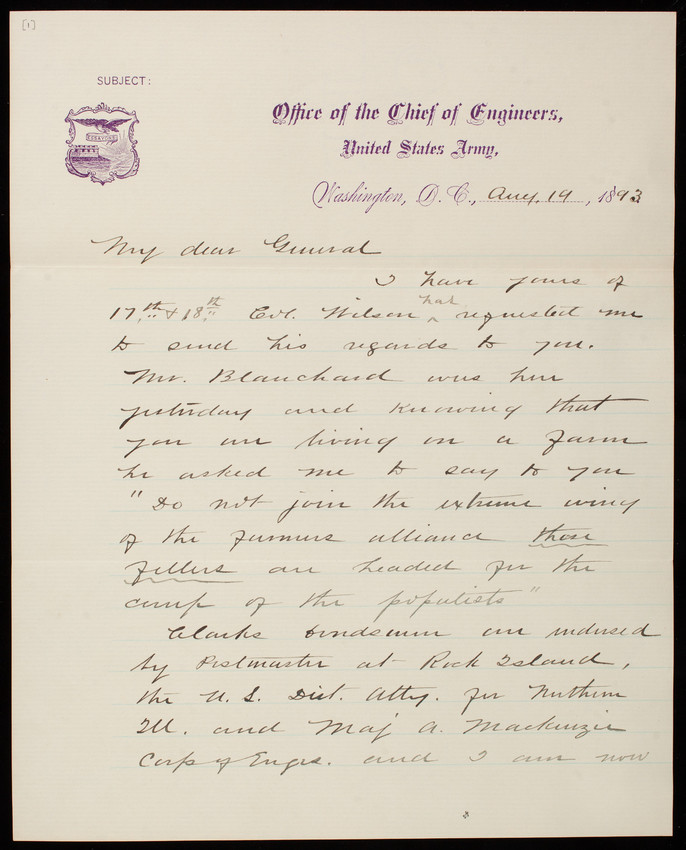 [1]
SUBJECT:
ESSAYONS
Office of the Chief of Engineers,
United States Army,
Washington, D. C., Aug. 19, 1893
My dear General
I have yours of
17th & 18th Col. Wilson has requested me
to send his regards to you.
Mr. Blanchard was here
yesterday and knowing that
you are living on a farm
he asked me to say to you
"Do not join the extreme wing
of the farmers alliance those
fellers are headed for the
camp of the populists"
Clarks bondsmen are indorsed
by Postmaster at Rock Island,
the U. S. Dist. Atty. for Northern
Ill. and Maj A. Mackenzie
Corp of Engrs. and I am now